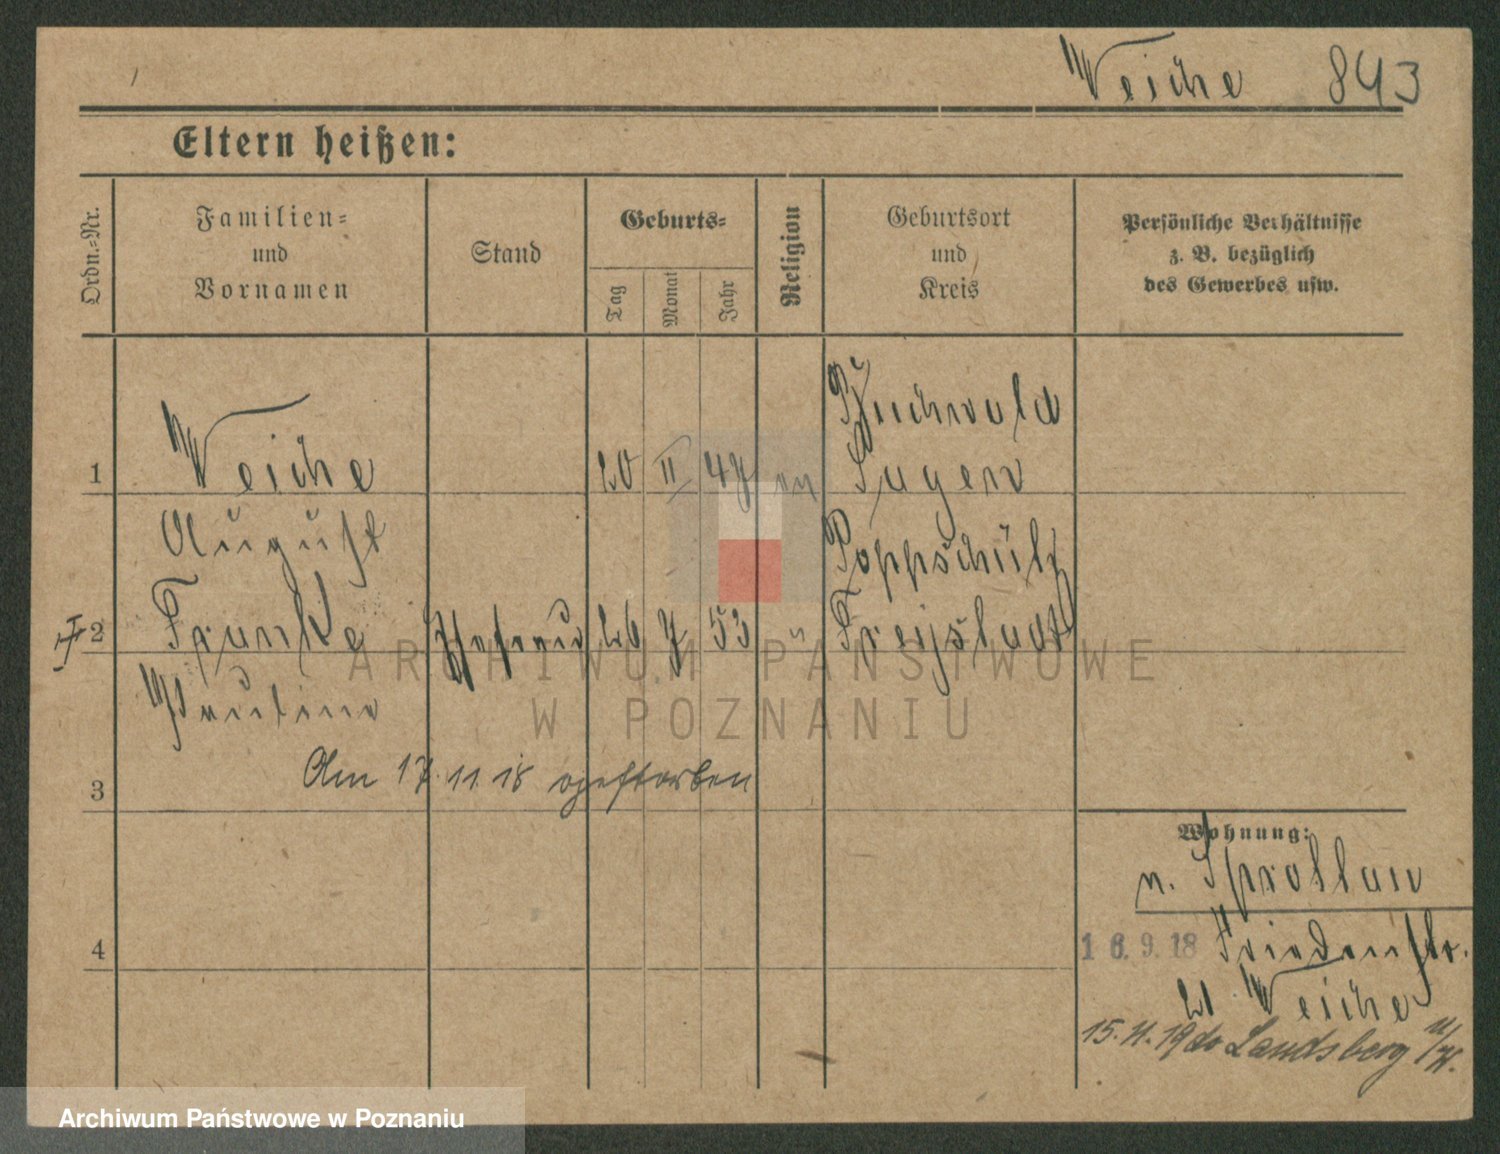 Weiche 843
Eltern heißen:
Ordn.-Nr.
Familien-
und
Vornamen
Stand
Geburts-
Tag
Monat
Jahr
Religion
Geburtsort
und
Kreis
Persönliche Verhältnisse
z. B. bezüglich
des Gewerbes usw.
1
Weiche
August
20 II 47
Buchwald
Sagan
2
Franke
Pauline
Ehefrau
26 7 53
Poppschütz
Freystadt
3
Am 17.11.18 gestorben
4
Wohnung:
n. Sprottau
16.9.18 Friedenstr.
21 Weiche
15. 11. 19 Landsberg
ARCHIWUM PAŃSTWOWE
W POZNANIU
Archiwum Państwowe w Poznaniu